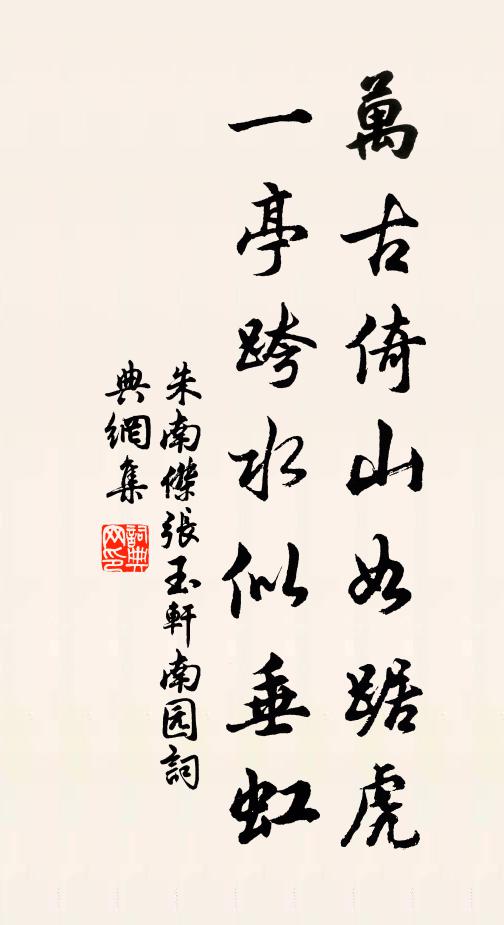 萬古倚山如踞虎
一亭跨水似垂虹
朱南傑張玉軒南园詞
典網集
詞典网印